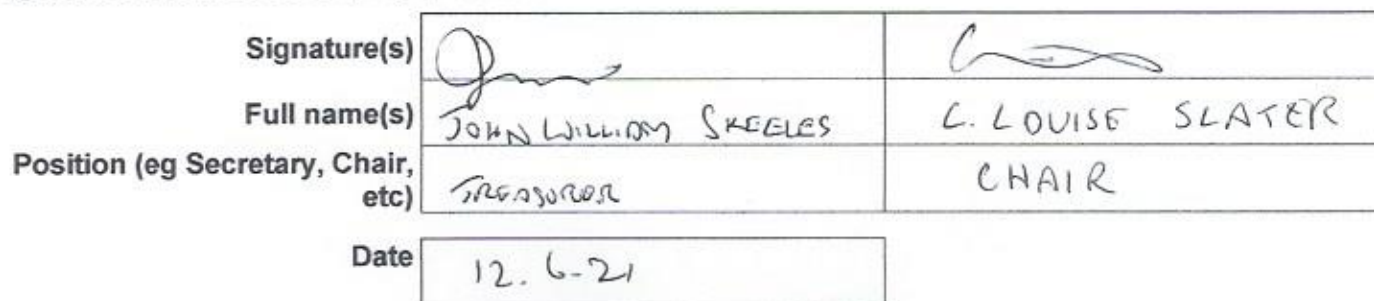 Signature(s)
Full name(s) JOHN WILLIAM SKEELES C. LOUISE SLATER
Position (eg Secretary, Chair,
etc) TREASURER CHAIR
Date 12.6-21